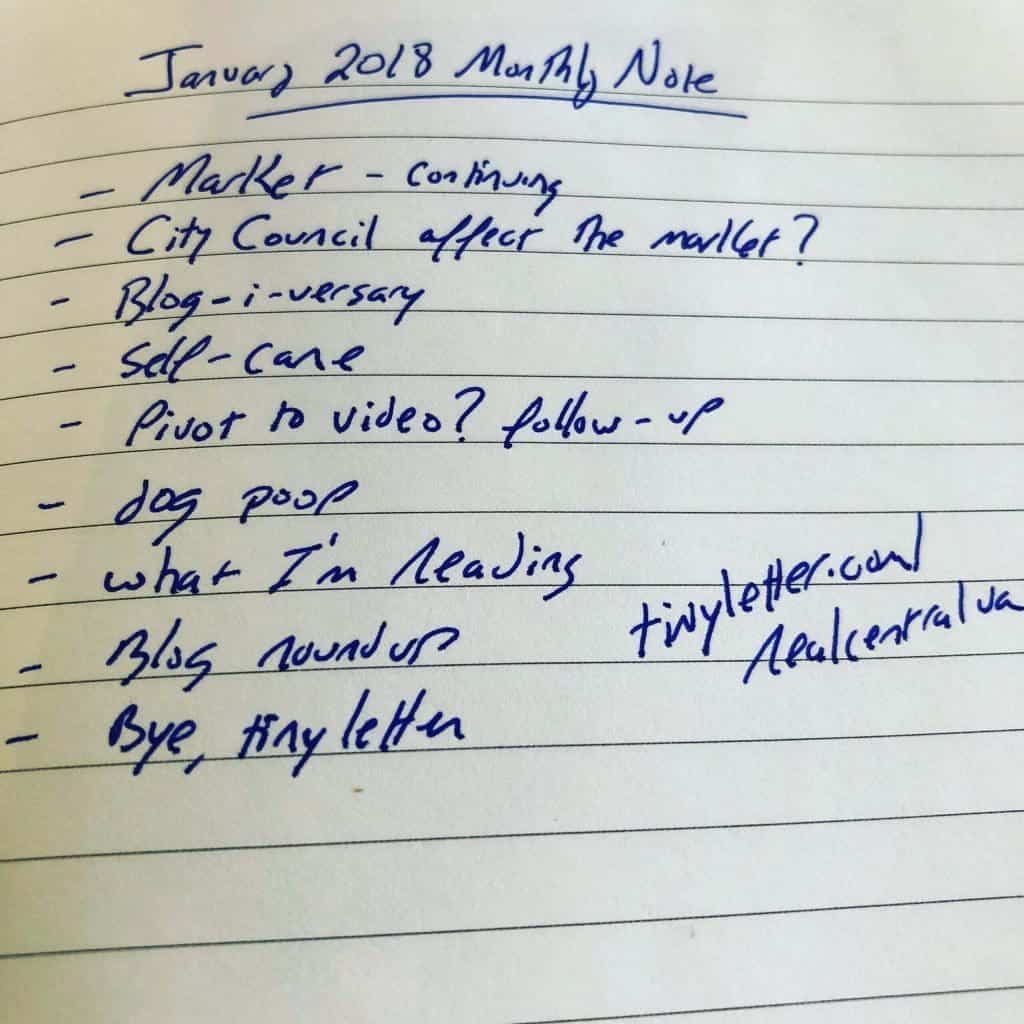 January 2018 Monthly Note
- Market - continuing
- City Council affect the market?
- Blog-i-versary
- Self-care
- Pivot to video? follow-up
- dog poop
- what I'm reading
- Blog roundup
- Bye, tinyletter
tinyletter.com/
realcentralva